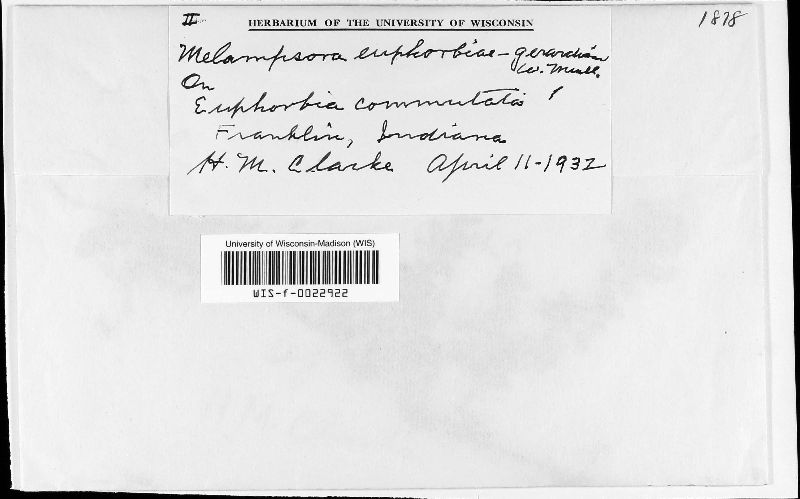 II
HERBARIUM OF THE UNIVERSITY OF WISCONSIN
1878
Melampsora euphorbiae-gerardianae
W. Muell.
On
Euphorbia commutata !
Franklin, Indiana
H. M. Clarke April 11-1932
University of Wisconsin-Madison (WIS)
WIS-f-0022922